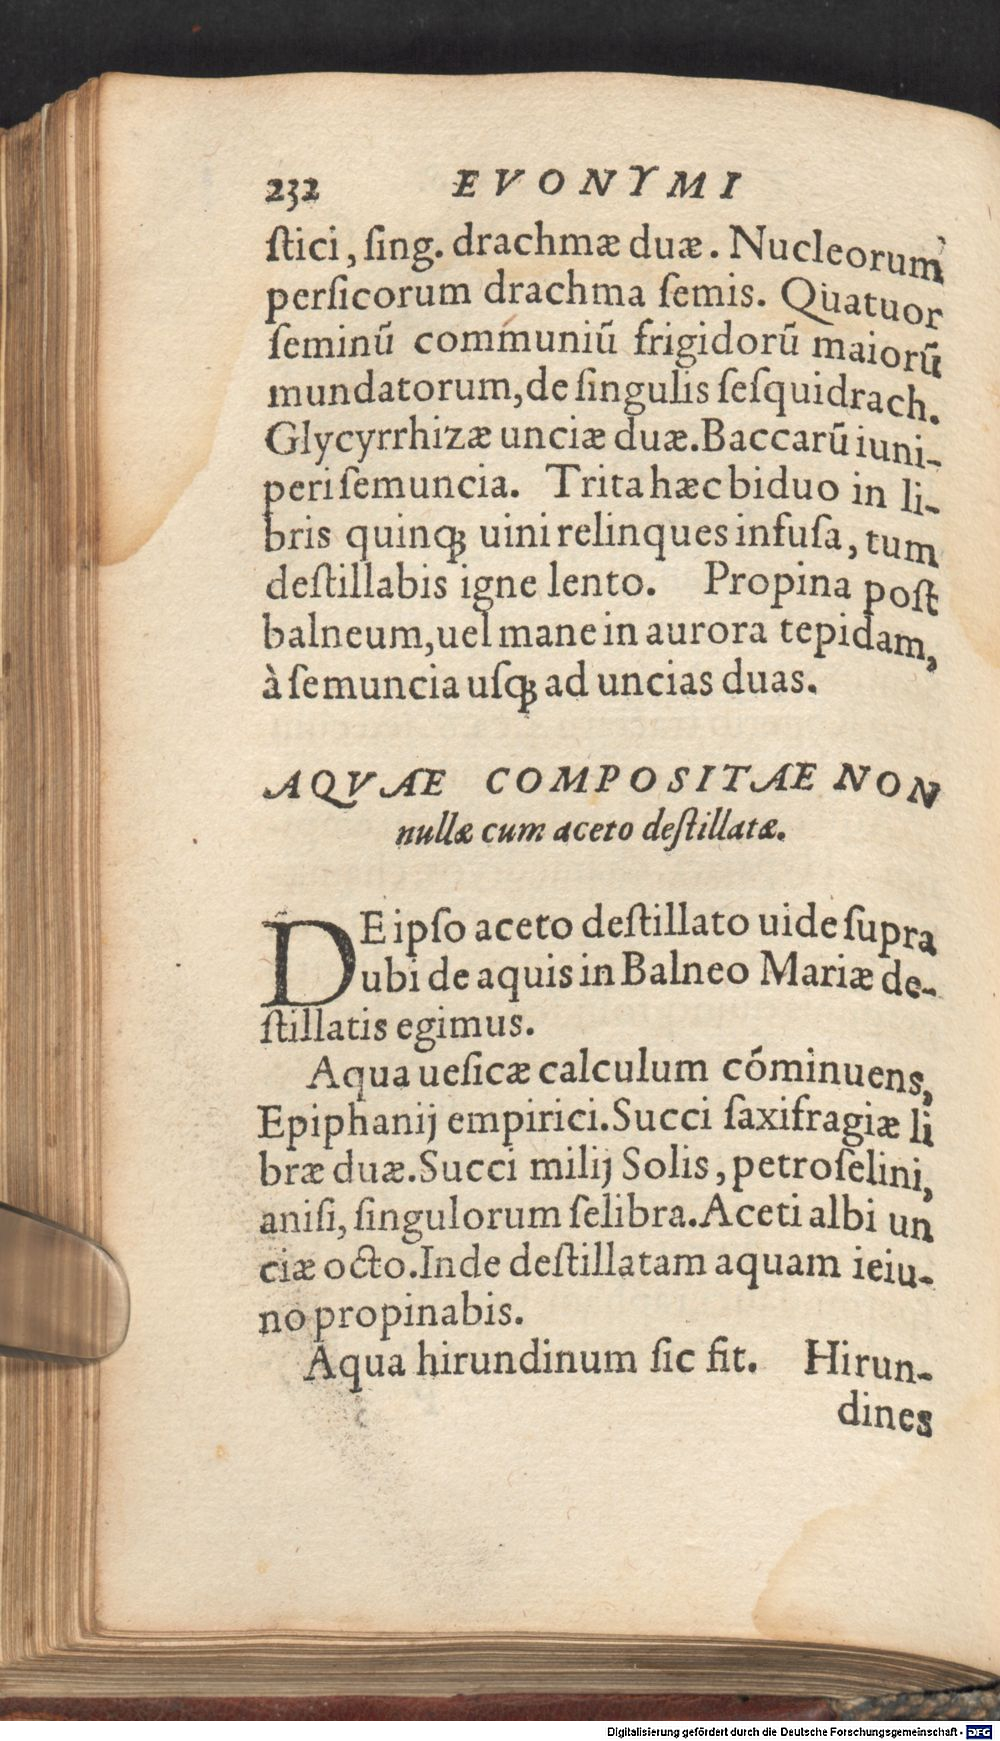 232 EVONYMI
ſtici, ſing. drachmæ duæ. Nucleorum
perſicorum drachma ſemis. Quatuor
ſeminũ communiũ frigidorũ maiorũ
mundatorum, de ſingulis ſeſquidrach.
Glycyrrhizæ unciæ duæ. Baccarũ iuni-
peri ſemuncia. Trita hæc biduo in li-
bris quinqꝫ uini relinques infuſa, tum
deſtillabis igne lento. Propina poſt
balneum, uel mane in aurora tepidam,
à ſemuncia uſqꝫ ad uncias duas.
AQVAE COMPOSITAE NON
nullæ cum aceto deſtillatæ.
DE ipſo aceto deſtillato uide ſupra
ubi de aquis in Balneo Mariæ de-
ſtillatis egimus.
Aqua ueſicæ calculum cõminuens,
Epiphanij empirici. Succi ſaxifragiæ li
bræ duæ. Succi milij Solis, petroſelini,
aniſi, ſingulorum ſelibra. Aceti albi un
ciæ octo. Inde deſtillatam aquam ieiu-
no propinabis.
Aqua hirundinum ſic fit. Hirun-
dines
Digitalisierung gefördert durch die Deutsche Forschungsgemeinschaft - DFG